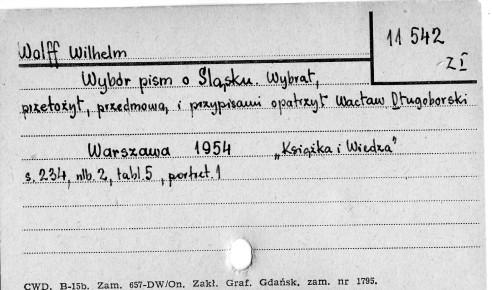 Wolff Wilhelm
11 542
Z I
Wybór pism o Śląsku. Wybrał,
przełożył, przedmową, i przypisami opatrzył Wacław Długoborski
Warszawa 1954 „Książka i Wiedza"
s. 234, nlb. 2, tabl. 5, portret. 1
CWD. B-15b. Zam. 657-DW/On. Zakł. Graf. Gdańsk, zam. nr 1795.